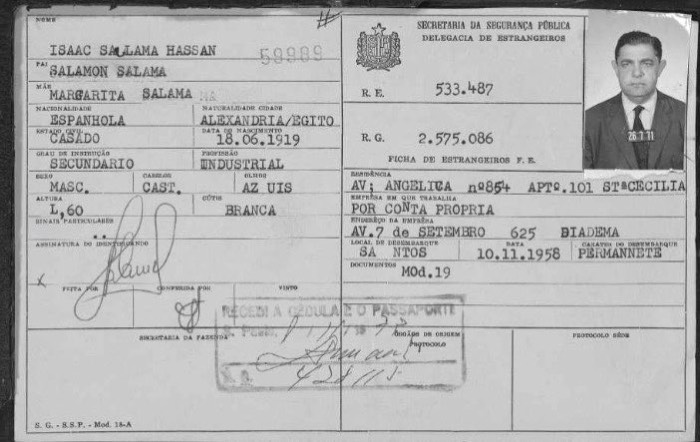 NOME
ISAAC SALAMA HASSAN
59989
PAI
SALAMON SALAMA
MÃE
MARGARITA SALAMA
NACIONALIDADE NATURALIDADE CIDADE
ESPANHOLA ALEXANDRIA/EGITO
ESTADO CIVIL DATA DE NASCIMENTO
CASADO 18.06.1919
GRAU DE INSTRUÇÃO PROFISSÃO
SECUNDARIO INDUSTRIAL
SEXO CABELOS OLHOS
MASC. CAST. AZ UIS
ALTURA CÚTIS
1,60 BRANCA
SINAIS PARTICULARES
..
ASSINATURA DO IDENTIFICANDO
x
FEITA POR CONFERIDA POR VISTO
SECRETARIA DA FAZENDA
S. G. - S.S.P. - Mod. 18-A
SECRETARIA DA SEGURANÇA PÚBLICA
DELEGACIA DE ESTRANGEIROS
R. E. 533.487
R. G. 2.575.086
FICHA DE ESTRANGEIROS F. E.
26.1.71
RESIDÊNCIA
AV; ANGELICA nº854 APTº.101 STªCECILIA
EMPRÊSA EM QUE TRABALHA
POR CONTA PROPRIA
ENDERÊÇO DA EMPRÊSA
AV.7 de SETEMBRO 625 BIADEMA
LOCAL DE DESEMBARQUE DATA CARATER DO DESEMBARQUE
SA NTOS 10.11.1958 PERMANNETE
DOCUMENTOS
MOd.19
RECEBI A CÉDULA E O PASSAPORTE
S. Paulo,
ÓRGÃOS DE ORIGEM
PROTOCOLO
PROTOCOLO SÉDE